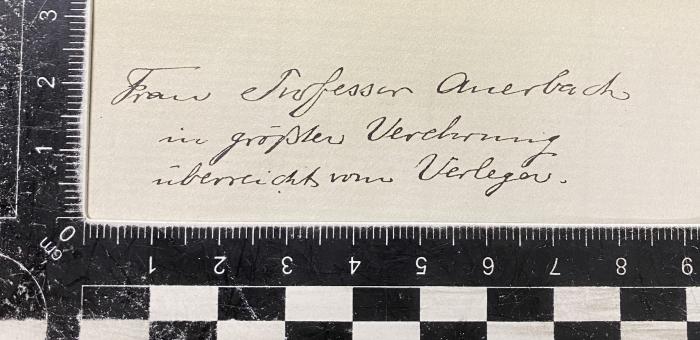 Frau Professor Auerbach
in größter Verehrung
überreicht vom Verleger.
3
2
1
0
cm
1 2 3 4 5 6 7 8 9